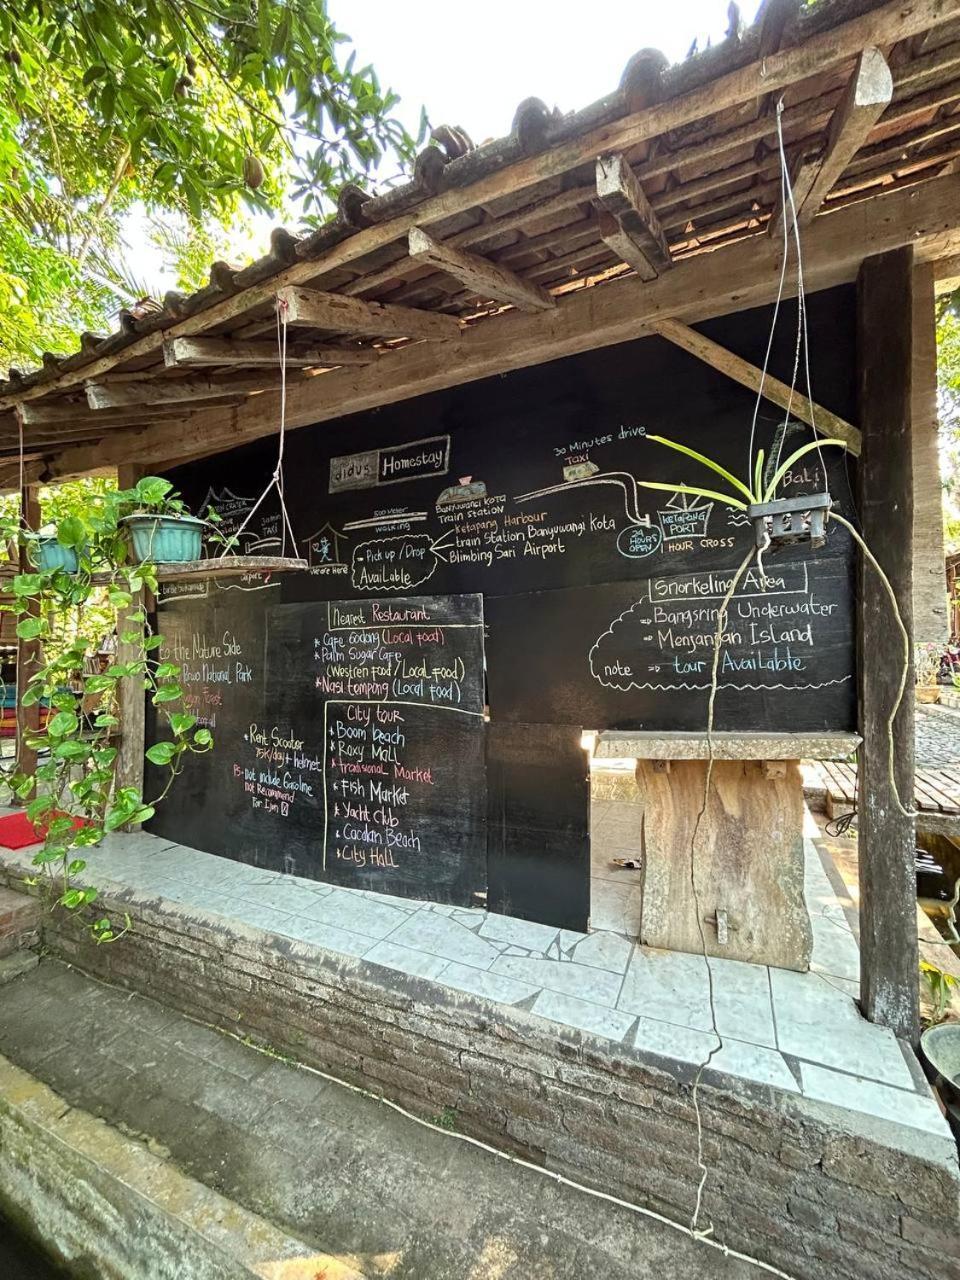 didus Homestay
30 Minutes drive
Taxi
Bali
500 Meter
walking
Banyuwangi Kota
Train Station
30 min
TAXI
We are Here
Pick up / Drop
Available
Ketapang Harbour
train Station Banyuwangi Kota
Blimbing Sari Airport
24
HOURS
OPEN
KETAPANG
PORT
1 HOUR CROSS
airport
Snorkeling Area
Bangsring Underwater
Menjangan Island
note
tour Available
Nearest Restaurant
* Cafe Godong (Local food)
* Palm Sugar Cafe
(Westren Food / Local Food)
* Nasi tempong (Local food)
to the Nature Side
National Park
Forest
City tour
* Boom beach
* Roxy Mall
* tradisional Market
* Fish Market
* Yacht club
* Cacalan Beach
* City Hall
* Rent Scooter
75K/day + helmet
PS: not include Gasoline
not Recommend
For Ijen